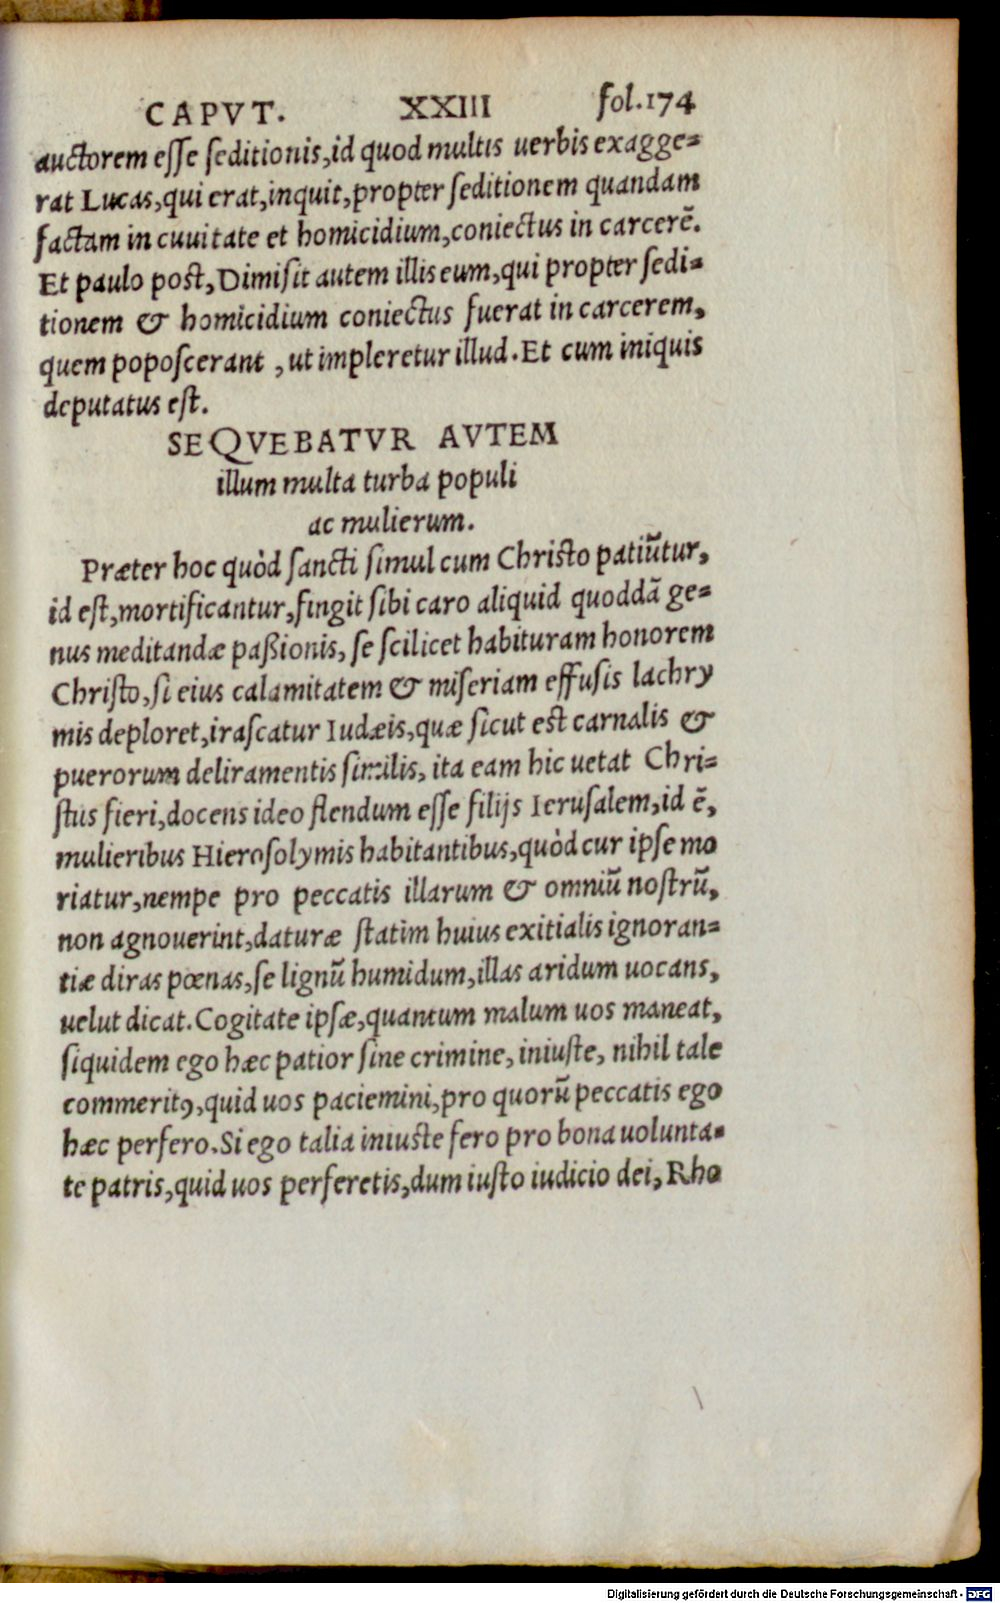 CAPVT. XXIII fol.174
auctorem esse seditionis,id quod multis uerbis exagge=
rat Lucas,qui erat,inquit,propter seditionem quandam
factam in cuuitate et homicidium,coniectus in carcerē.
Et paulo post,Dimisit autem illis eum,qui propter sedi=
tionem & homicidium coniectus fuerat in carcerem,
quem poposcerant ,ut impleretur illud.Et cum iniquis
deputatus est.
SEQVEBATVR AVTEM
illum multa turba populi
ac mulierum.
Præter hoc quòd sancti simul cum Christo patiūtur,
id est,mortificantur,fingit sibi caro aliquid quoddā ge=
nus meditandæ paßionis, se scilicet habituram honorem
Christo,si eius calamitatem & miseriam effusis lachry
mis deploret,irascatur Iudæis,quæ sicut est carnalis &
puerorum deliramentis similis, ita eam hic uetat Chri=
stus fieri,docens ideo flendum esse filijs Ierusalem,id ē,
mulieribus Hierosolymis habitantibus,quòd cur ipse mo
riatur,nempe pro peccatis illarum & omniū nostrū,
non agnouerint,daturæ statim huius exitialis ignoran=
tiæ diras pœnas,se lignū humidum,illas aridum uocans,
uelut dicat.Cogitate ipsæ,quantum malum uos maneat,
siquidem ego hæc patior sine crimine, iniuste, nihil tale
commeritꝯ,quid uos paciemini,pro quorū peccatis ego
hæc perfero.Si ego talia iniuste fero pro bona uolunta=
te patris,quid uos perferetis,dum iusto iudicio dei, Rho
Digitalisierung gefördert durch die Deutsche Forschungsgemeinschaft - DFG